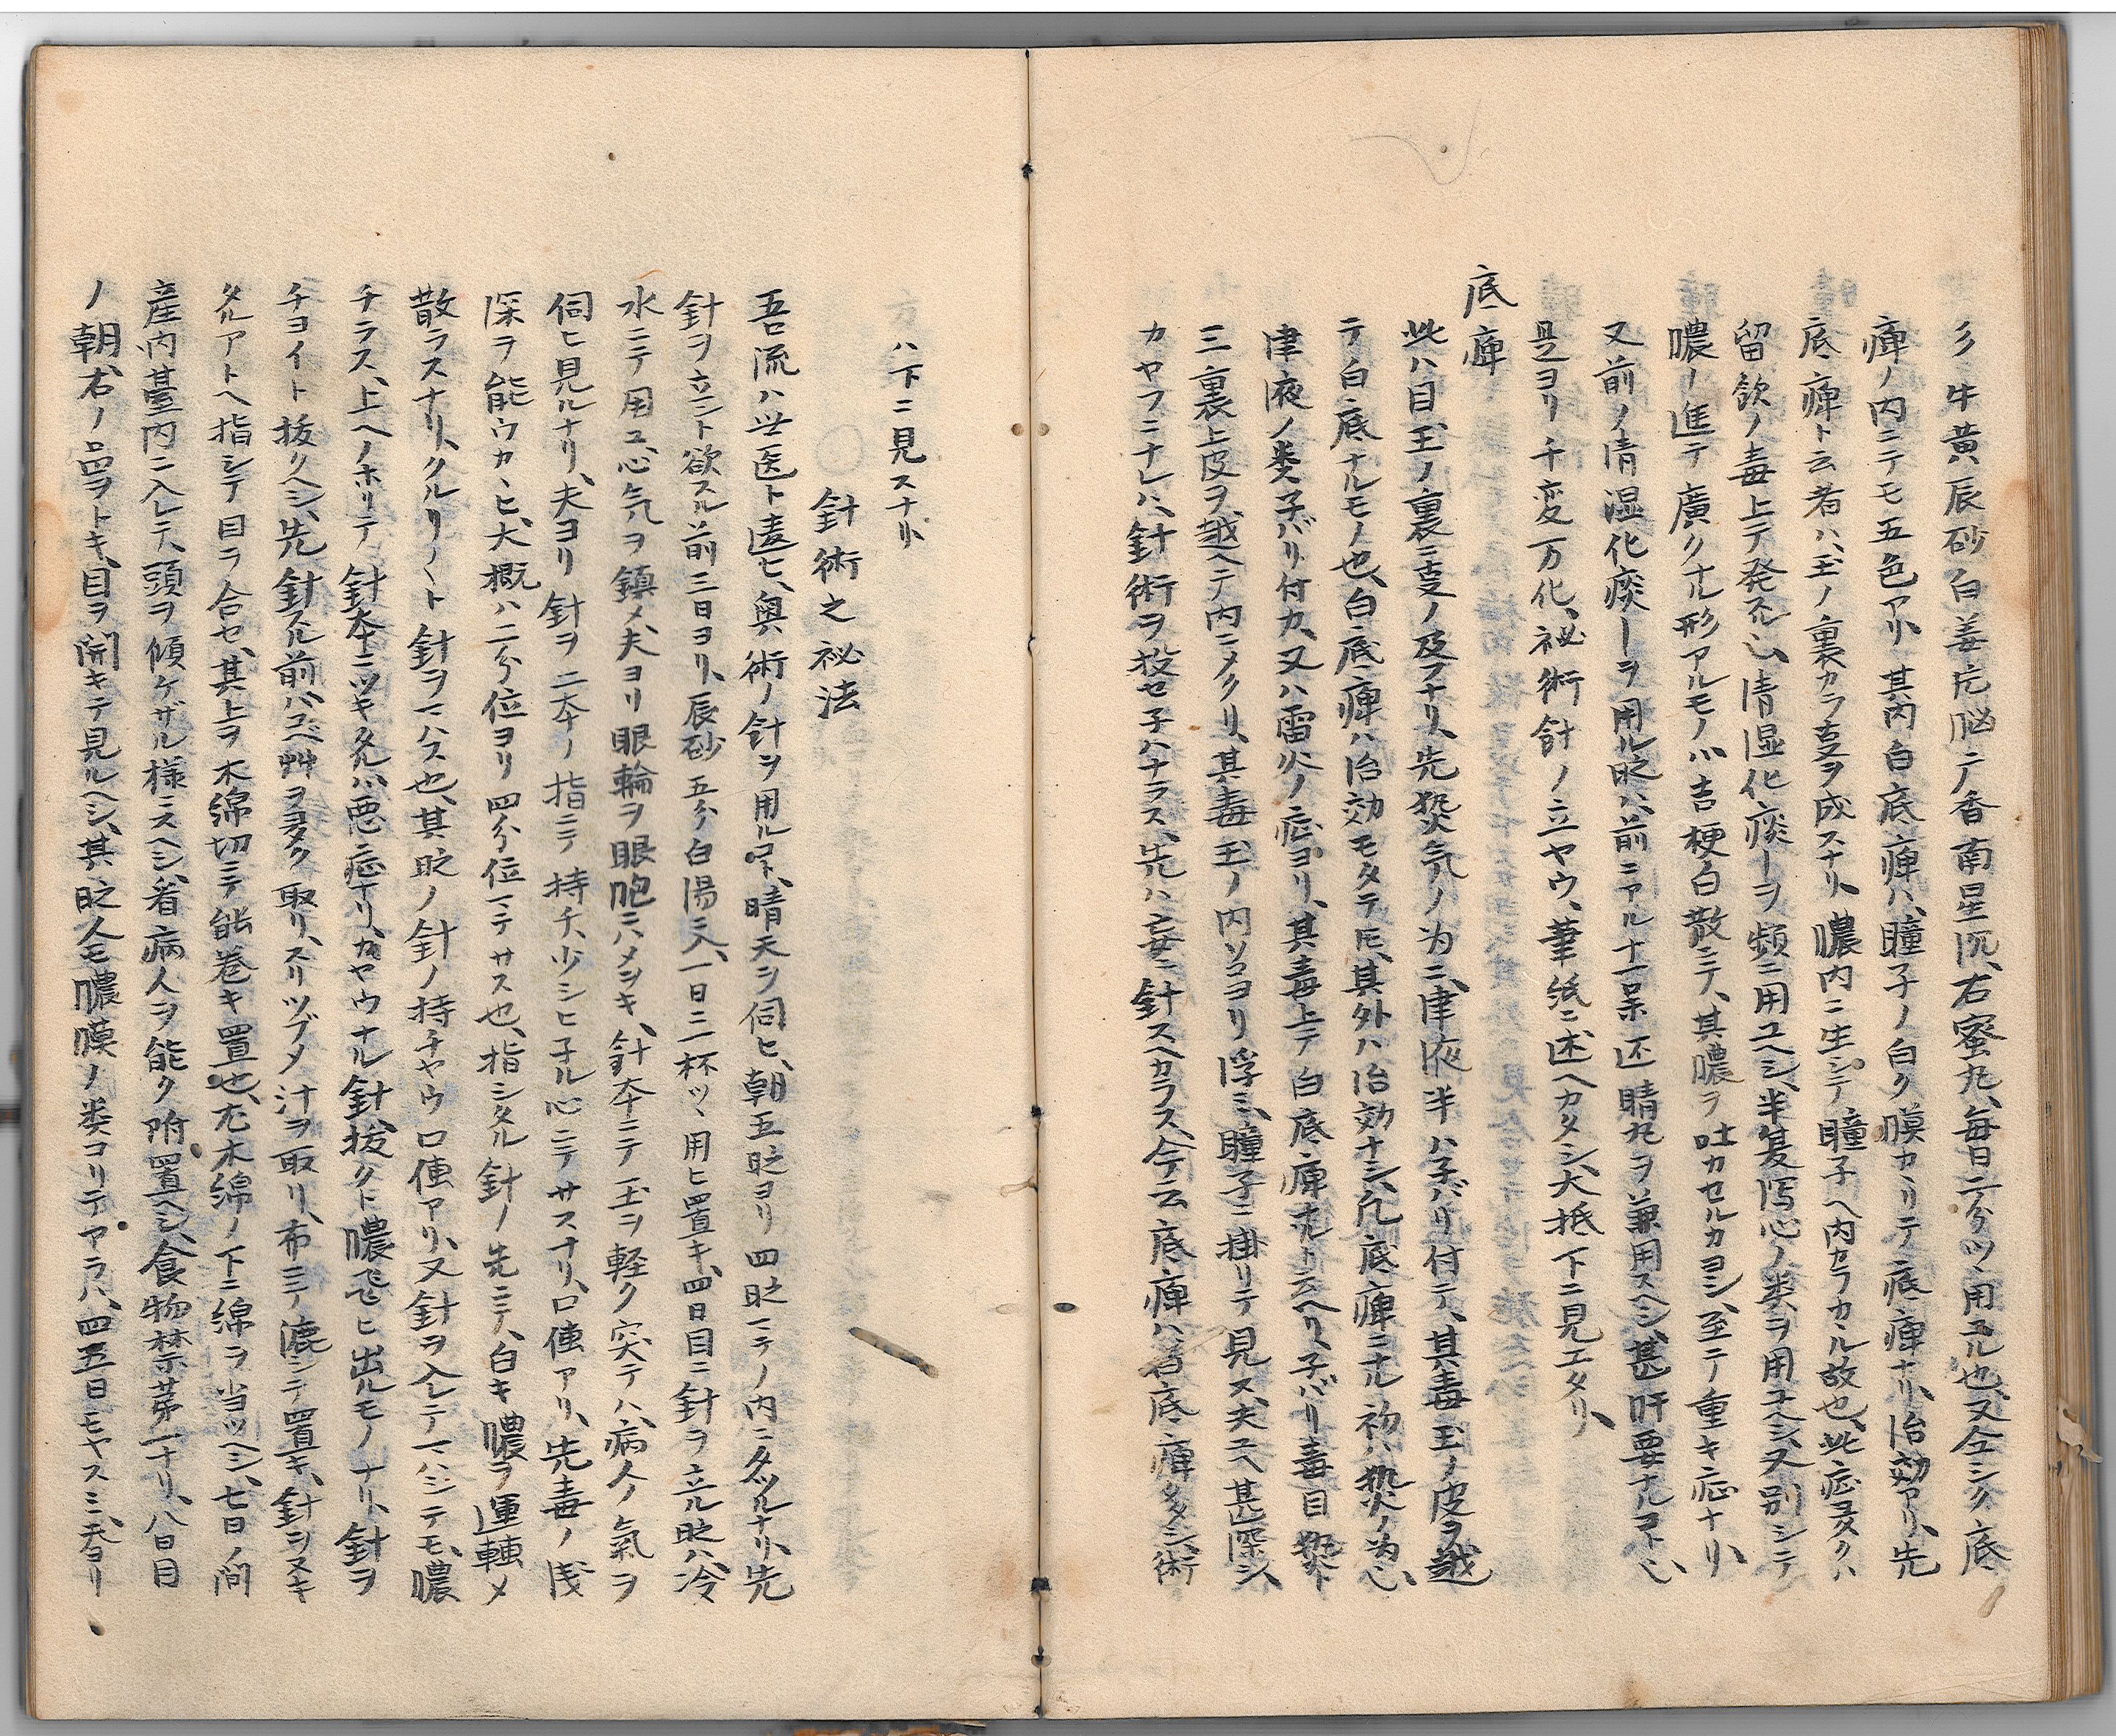 牛黄辰砂白姜 脳 香南星 右蜜丸、毎日二分ツヽ用ユル也、又全シク底
痺ノ内ニテモ五色アリ、其内白底痺ハ、瞳子ノ白ク膜カヽリテ底痺ナリ、治効アリ、先
底痺ト云者ハ、玉ノ裏カラ 成スナリ、膿内ニ生シテ瞳子ヘ内カラカヽル故也、此症ヲクハ
留飲ノ毒上テ発ス 、清湿化痰 ヲ頻ニ用ユヘシ、半夏瀉心ノ類ヲ用ユヘシ、又別シテ
膿ノ進テ廣クナル形アルモノハ吉梗白散ニテ、其膿ヲ吐カセルカヨシ、至テ重キ症ナリ、
又前ノ清湿化痰 ヲ用ル時ハ、前ニアル十一味還晴丸ヲ兼用スヘシ、甚肝要ナルコト
是ヨリ千変万化、秘術針ノ立ヤウ、筆紙ニ述ヘカタシ、大抵下ニ見エタリ、
底痺
此ハ目玉ノ裏ニ ノ及フナリ、先 気ノ為ニ、津液半ハ子バリ付テ、其毒玉ノ皮ヲ越
テ白底ナルモノ也、白底痺ハ治効モタテ𪜈、其外ハ治効ナシ、凡底痺ニナル初ハ ノ為
津液ノ類子バリ付カ、又ハ雷火ノ症ヨリ、其毒上テ白底痺ナルト云ヘリ、子バリ毒目
三裏上皮ヲ越ヘテ内ニメクリ、其毒玉ノ内ソコヨリ浮ミ、瞳子ニ掛リテ見ス、夫ユヘ甚深シ、
カヤフニナレハ、針術ヲ投セ子ハナラス、先ハ妄ニ針スヘカラス、今云底痺ハ 底痺多シ、術
方ハ下ニ見スナリ、
○ 針術之秘法
吾流ハ世医ト違ヒ、奥術ノ針ヲ用ルコト、晴天ヲ伺ヒ、朝五時ヨリ四時マテノ内ニタツルナリ、先
針ヲ立ント欲スル前三日ヨリ、辰砂五分白湯ニ入、一日三杯ツヽ用ヒ置キ、四日目ニ針ヲ立ル時ハ、冷
水ニテ用ユ、心気ヲ鎮メ、夫ヨリ眼輪ヲ眼胞ニハメヲキ、針本ニテ玉ヲ軽ク突テハ、病人ノ氣ヲ
伺ヒ見ルナリ、夫ヨリ針ヲ二本ノ指ニテ持チ、少シヒ子ル心ニテサスナリ、口傳アリ、先毒ノ浅
深ヲ能ウカヽヒ、大概ハ二分位ヨリ四分位マテサス也、指シタル針ノ先ニテ、白キ膿ヲ運轉メ
散ラスナリ、クルリ〱ト針ヲマハス也、其時ノ針ノ持チヤウ口傳アリ、又針ヲ入レテマハシテモ、膿
チラス、上ヘノホリテ針本ニツキタルハ悪症ナリ、カヤウナル針、抜クト膿飛ヒ出ルモノナリ、針ヲ
チヨイト抜クヘシ、先針スル前ハ 艸ヲヨク取リ、スリツブメ汁ヲ取リ、布ニテ漉シテ置キ、針ヲヌキ
タルアトヘ指シテ目ヲ合セ、其上ヲ木綿切ニテ能巻キ置也、尤木綿ノ下ニ綿ヲ当ツヘシ、七日ノ間
産内蓋内ニ入レテ、頭ヲ傾ケザル様ニスヘシ、看病人ヲ能ク附置ヘシ、食物禁第一ナリ、八日目
ノ朝、右ノ品ヲトキ、目ヲ開キテ見ルヘシ、其時人モ膿膜ノ類コリテヤラハ、四五日モヤスミ、夫ヨリ